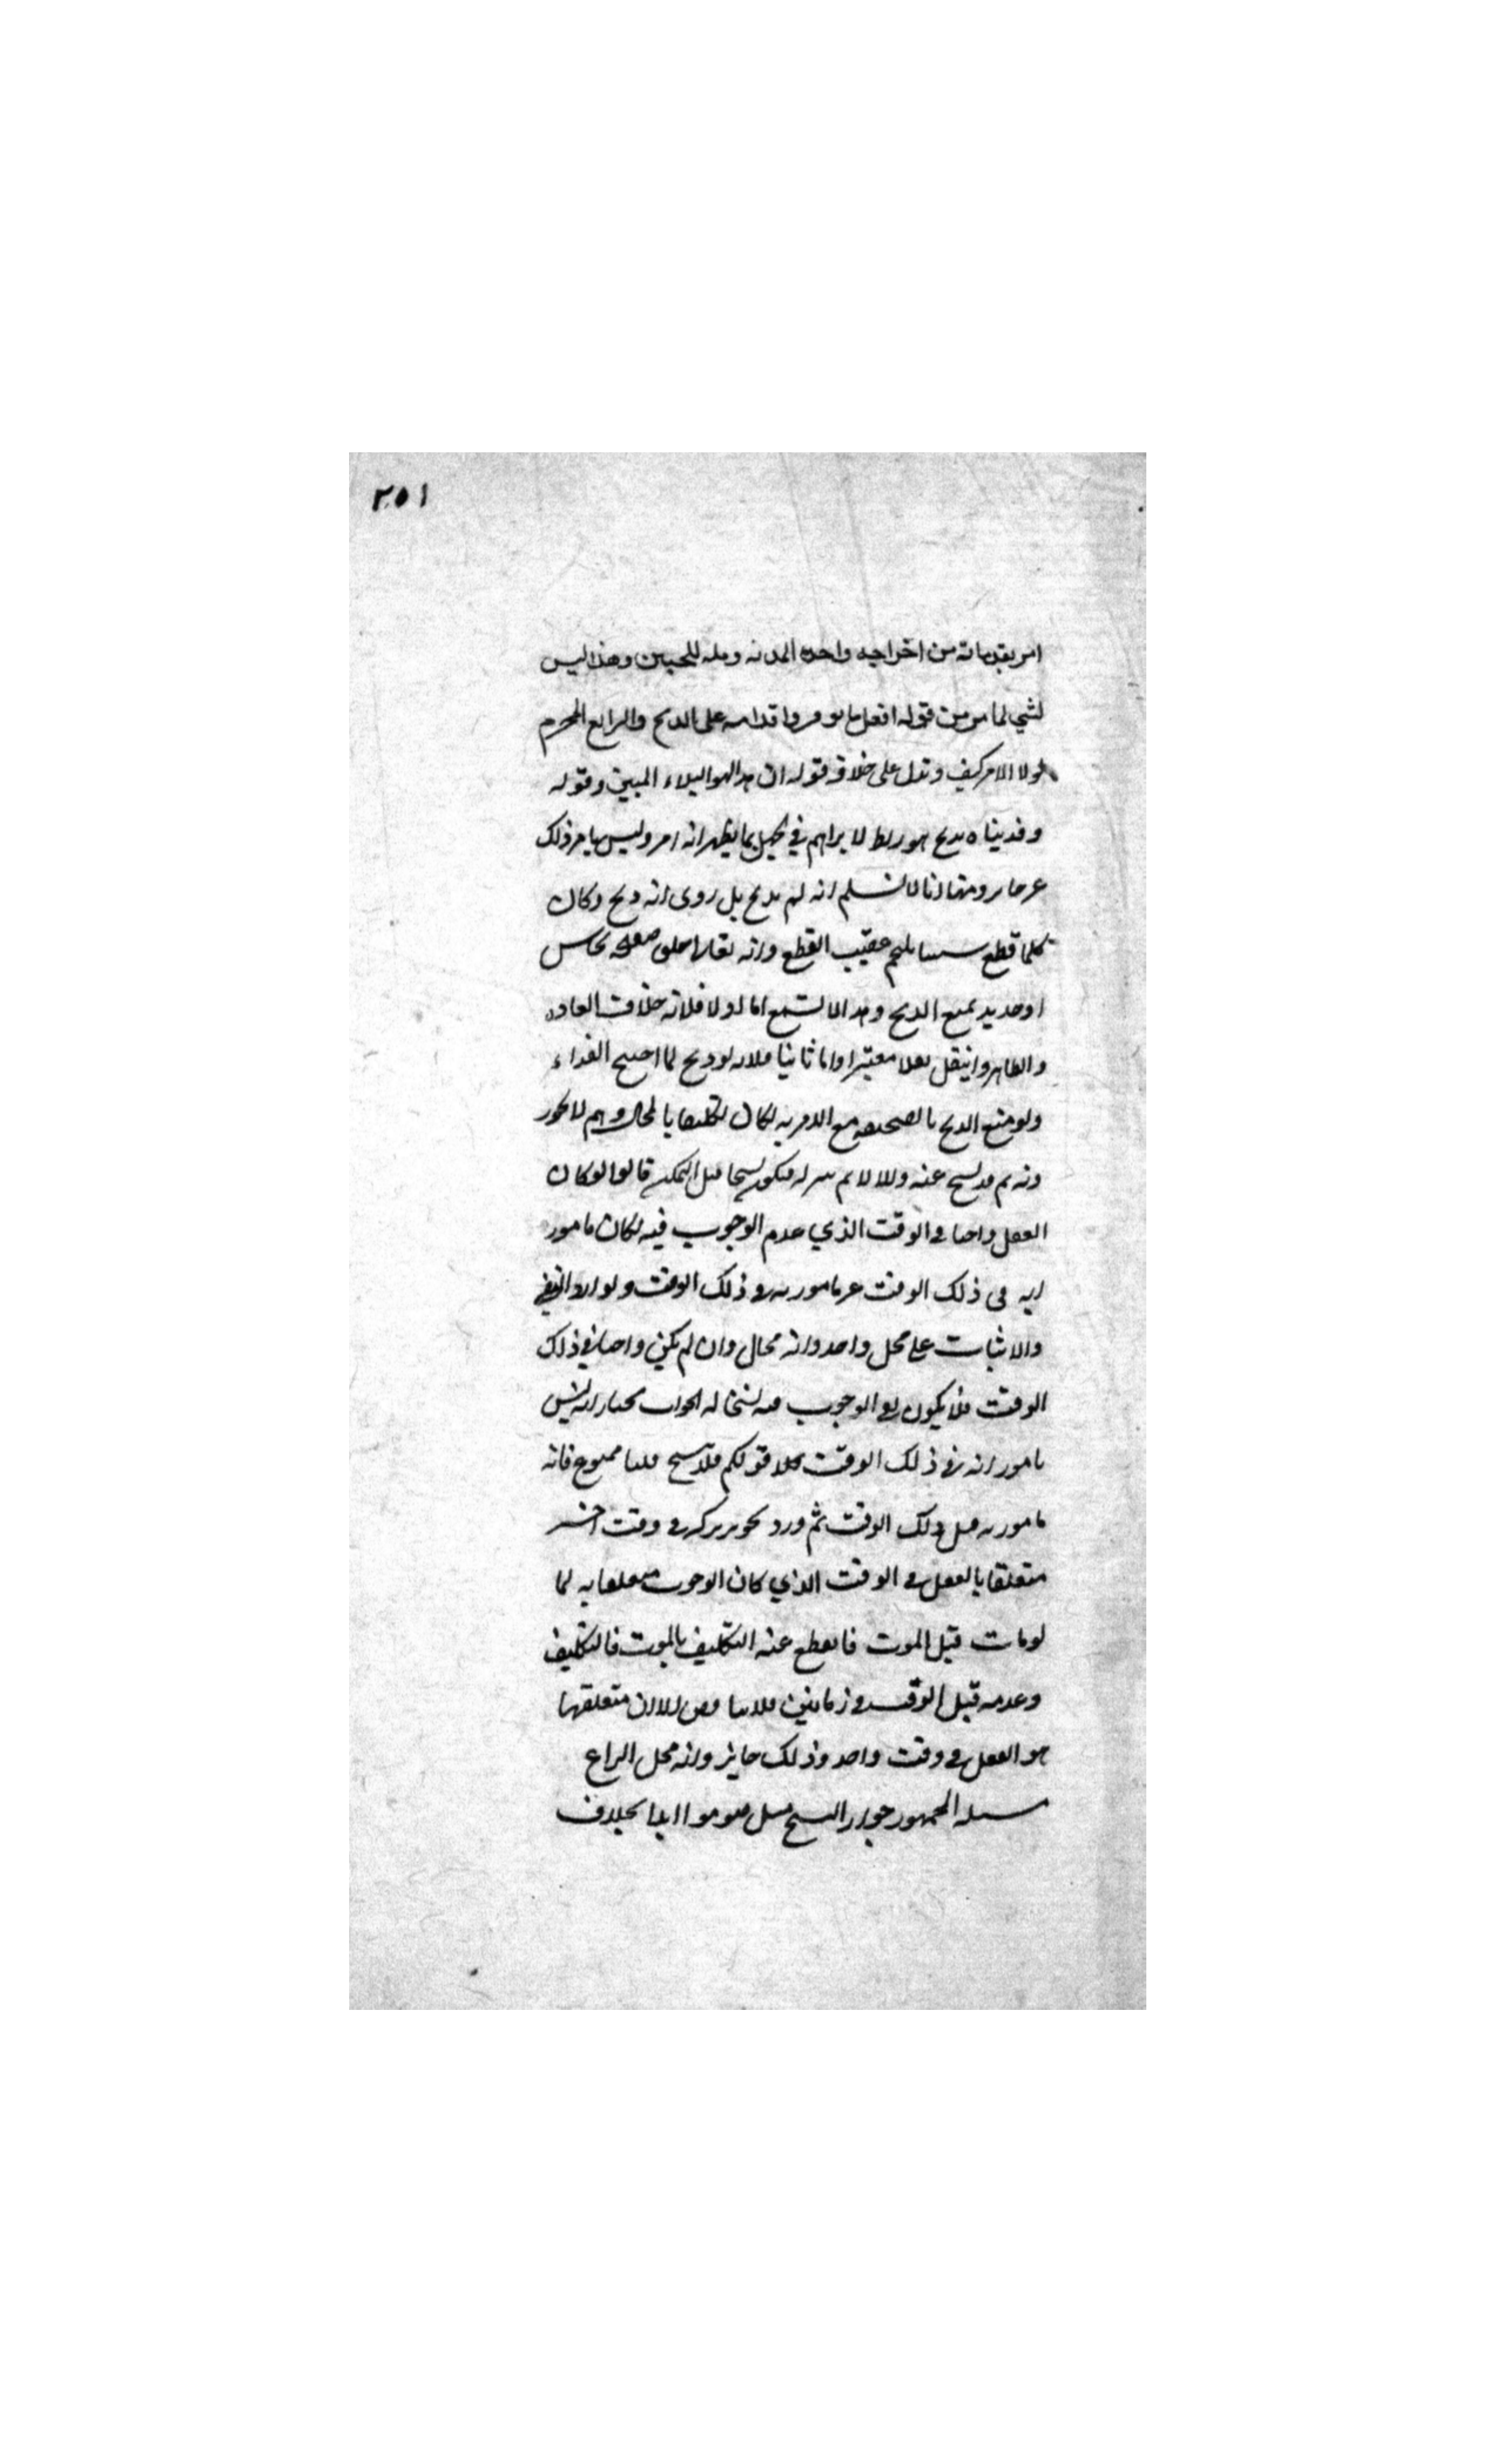 ٢٥١
امر بمقدماته من اخراجه واخذه المدية وتله للجبين وهذا ليس
لشي لما مر من قوله افعل ما تومر واقدامه على الذبح والترايع المحرم
لولا الامر كيف وتدل على خلافه قوله ان هذا لهو البلاء المبين وقوله
وفديناه بذبح لابراهيم في بما يظهر انه امر وليس بامر ذلك
ومنها انا لا نسلم انه لم يذبح بل روى انه ذبح وكان
كلما قطع شيئا يلتحم عقيب القطع وانه خلق نحاس
او حديد يمنع الذبح وهذا لا يسمع اما اولا فلانه خلاف العادة
والظاهر وانتقل نقلا معتبرا واما ثانيا فلانه لو ذبح لما احتيج الفداء
ولو منع الذبح بالصحيفة مع الامر به لكان تكليفا بالمحال وهم لا يجوز
ونه ثم قد نسخ عنه والا لاثم بتركه فيكون نسخا قبل التمكن قالوا لو كان
الفعل واجبا في الوقت الذي عدم الوجوب فيه لكان مامور
ابه في ذلك الوقت غير مامور به في ذلك الوقت النفي
والاثبات على محل واحد وانه محال وان لم يكن واجبا في ذلك
الوقت فلا يكون الوجوب فيه نسخا له الجواب نختار انه ليس
مامورا به في ذلك الوقت قولكم فلا نسخ قلنا ممنوع فانه
مامور به قبل ذلك الوقت ثم ورد تركه في وقت اخر
متعلقا بالفعل في الوقت الذي كان الوجوب متعلقا به لما
لو مات قبل الموت فانقطع عنه التكليف بالموت فالتكليف
وعدمه قبل الوقت في زمانين فلا تناقض الا ان متعلقهما
هو الفعل في وقت واحد وذلك جايز وانه محل النزاع
مسئلة الجمهور جواز النسخ مثل صوموا ابدا بخلاف